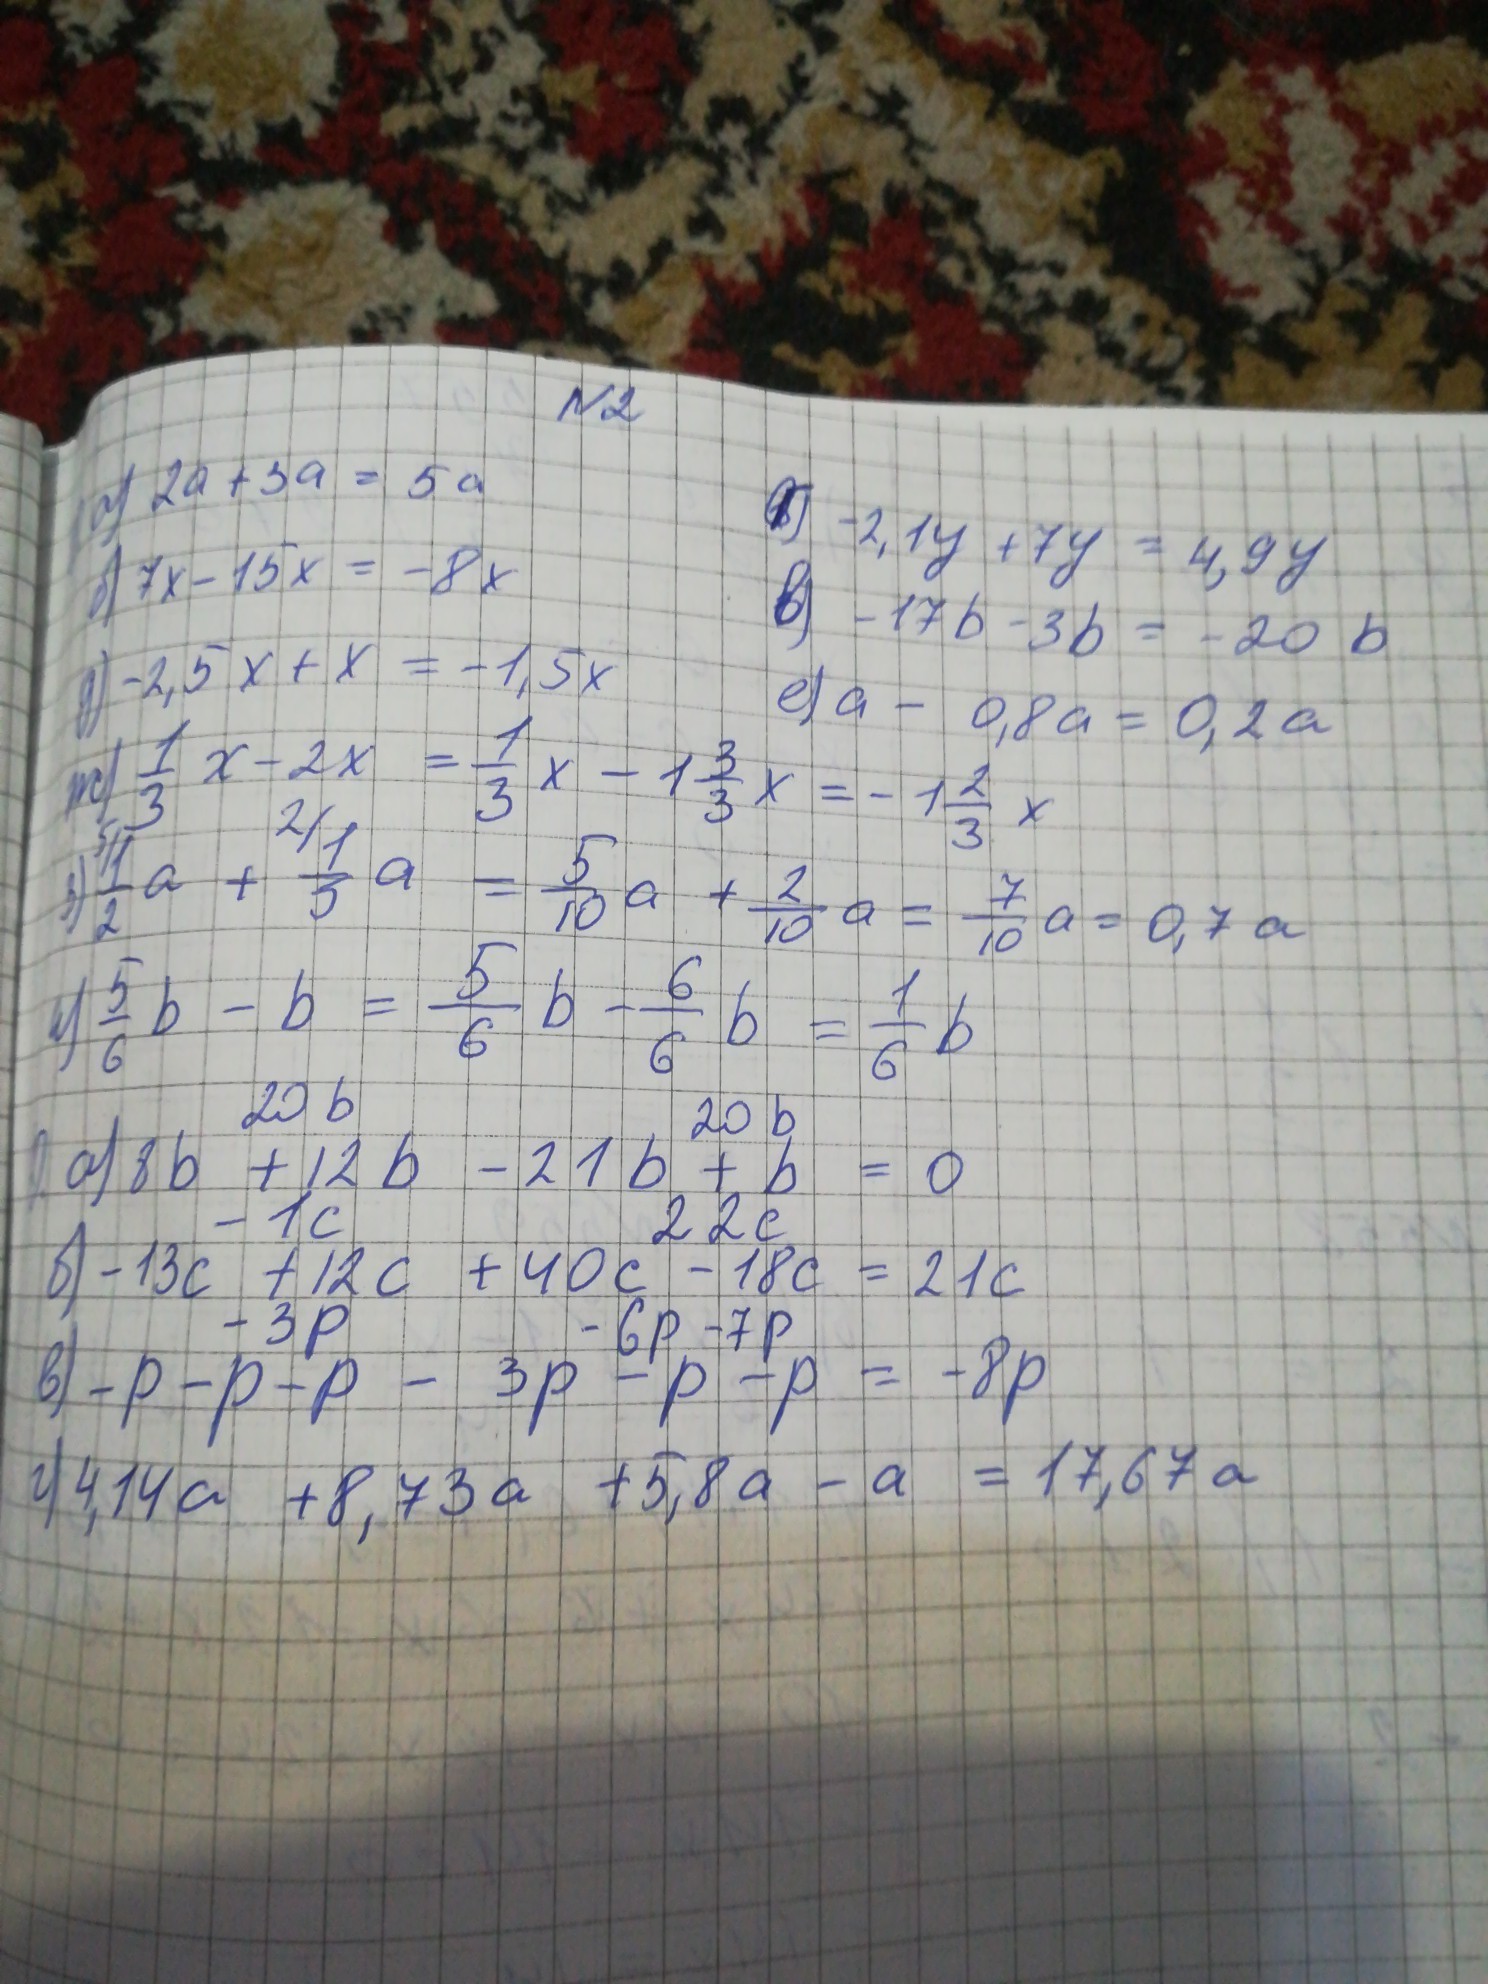 N2
а) 2a + 3a = 5a
б) 7x - 15x = -8x
д) -2,5x + x = -1,5x
г) -2,1y + 7y = 4,9y
в) -17b - 3b = -20b
е) a - 0,8a = 0,2a
ж) 1/3 x - 2x = 1/3 x - 1 3/3 x = -1 2/3 x
5/ 2/
з) 1/2 a + 1/5 a = 5/10 a + 2/10 a = 7/10 a = 0,7a
и) 5/6 b - b = 5/6 b - 6/6 b = 1/6 b
20b 20b
а) 8b + 12b - 21b + b = 0
-1c 22c
б) -13c + 12c + 40c - 18c = 21c
-3p -6p -7p
в) -p - p - p - 3p - p - p = -8p
г) 4,14a + 8,73a + 5,8a - a = 17,67a